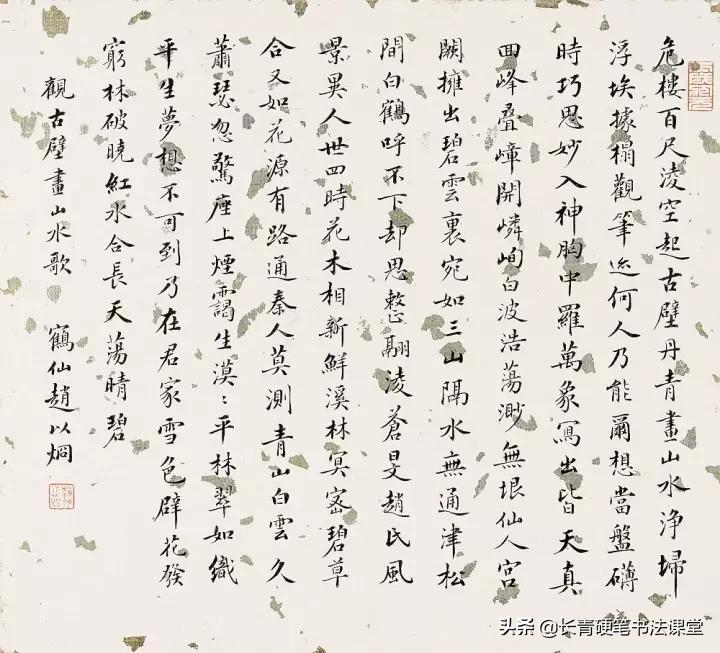 危樓百尺淩空起古壁丹青畫山水淨埽
浮埃據榻觀筆迹何人乃能爾想當盤礴
時巧思妙入神胸中羅萬象寫出皆天真
回峰疊嶂開嶙峋白波浩蕩渺無垠仙人宮
闕擁出碧雲裏宛如三山隔水無通津松
間白鶴呼不下却思整翮淩蒼旻趙氏風
景異人世四時花木相新鮮溪林冥密碧草
合又如花源有路通秦人莫測青山白雲久
蕭瑟忽驚座上煙靄生漠〻平林翠如織
平生夢想不可到乃在君家雪色辟花發
窮林破曉紅水合長天蕩晴碧
觀古壁畫山水歌 鶴仙趙以炯
头条 @长青硬笔书法课堂